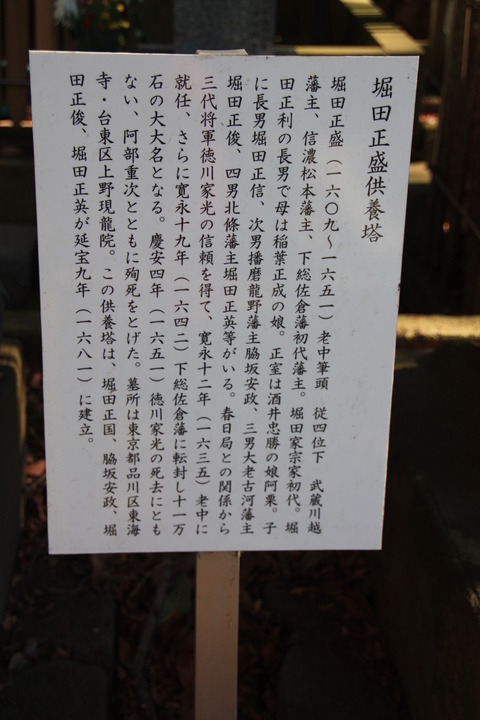 堀田正盛供養塔
堀田正盛（一六〇九～一六五一）老中筆頭　従四位下　武蔵川越
藩主、信濃松本藩主、下総佐倉藩初代藩主。堀田家宗家初代。堀
田正利の長男で母は稲葉正成の娘。正室は酒井忠勝の娘阿栗。子
に長男堀田正信、次男播磨龍野藩主脇坂安政、三男大老古河藩主
堀田正俊、四男北條藩主堀田正英等がいる。春日局との関係から
三代将軍徳川家光の信頼を得て、寛永十二年（一六三五）老中に
就任、さらに寛永十九年（一六四二）下総佐倉藩に転封し十一万
石の大大名となる。慶安四年（一六五一）徳川家光の死去にとも
ない、阿部重次とともに殉死をとげた。墓所は東京都品川区東海
寺・台東区上野現龍院。この供養塔は、堀田正国、脇坂安政、堀
田正俊、堀田正英が延宝九年（一六八一）に建立。